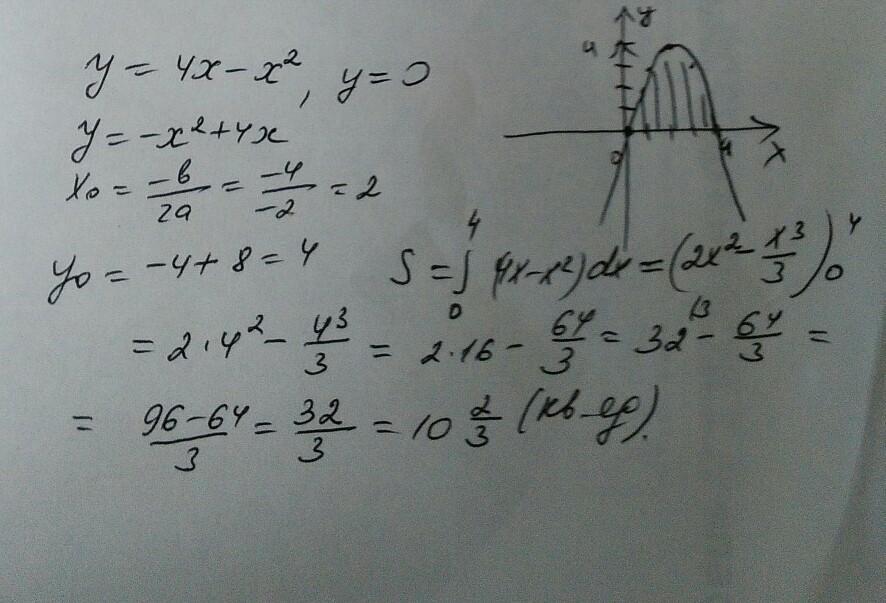 y = 4x - x², y = 0
y = -x² + 4x
x₀ = -b/2a = -4/-2 = 2
y₀ = -4 + 8 = 4
y
4
0
4
x
S = ∫₀⁴ (4x - x²) dx = (2x² - x³/3)₀⁴
= 2·4² - 4³/3 = 2·16 - 64/3 = 32\3 - 64/3 =
= 96-64/3 = 32/3 = 10 2/3 (кв ед).